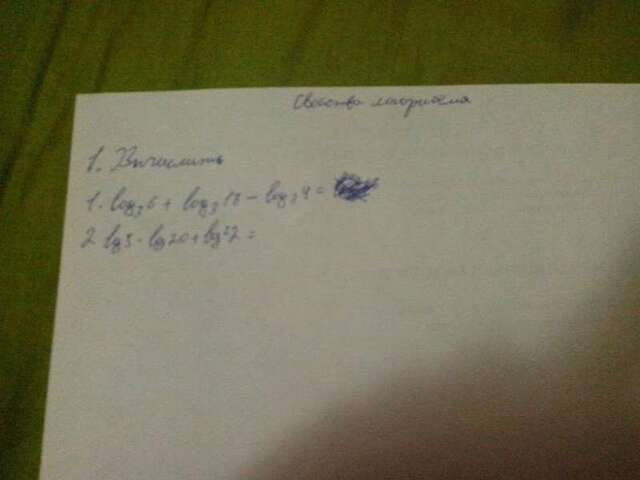 Свойства логарифма
1. Вычислить
1. log₃6 + log₃18 − log₃4 =
2 lg5 · lg20 + lg²2 =